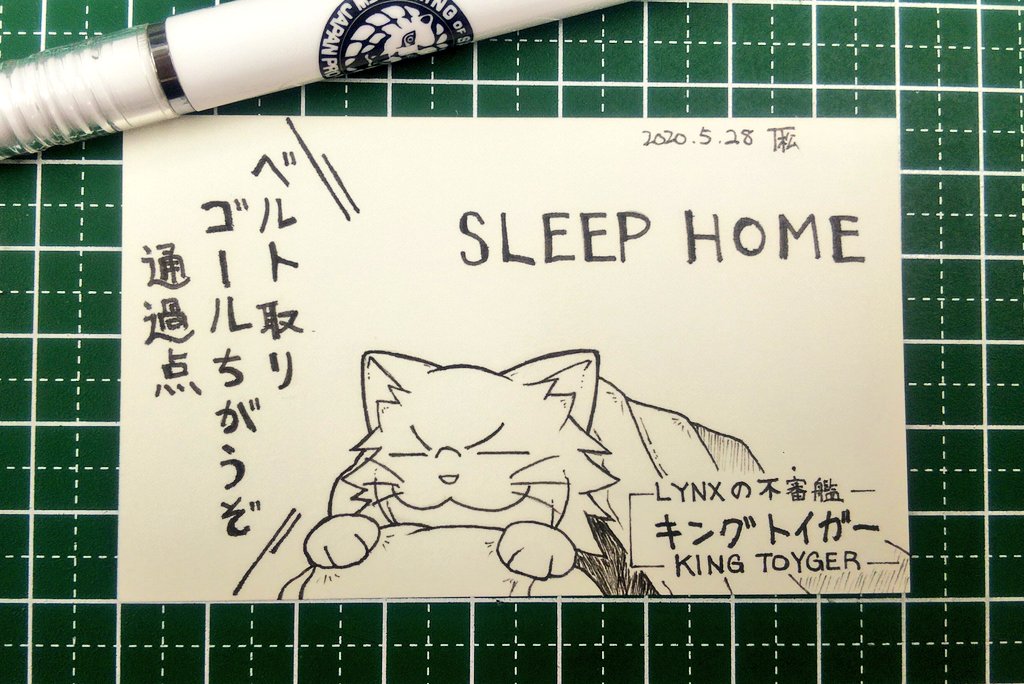 KING OF S
NEW JAPAN PRO
2020.5.28
SLEEP HOME
ベルト取り
ゴールちがうぞ
通過点
LYNXの不審艦
キングトイガー
KING TOYGER